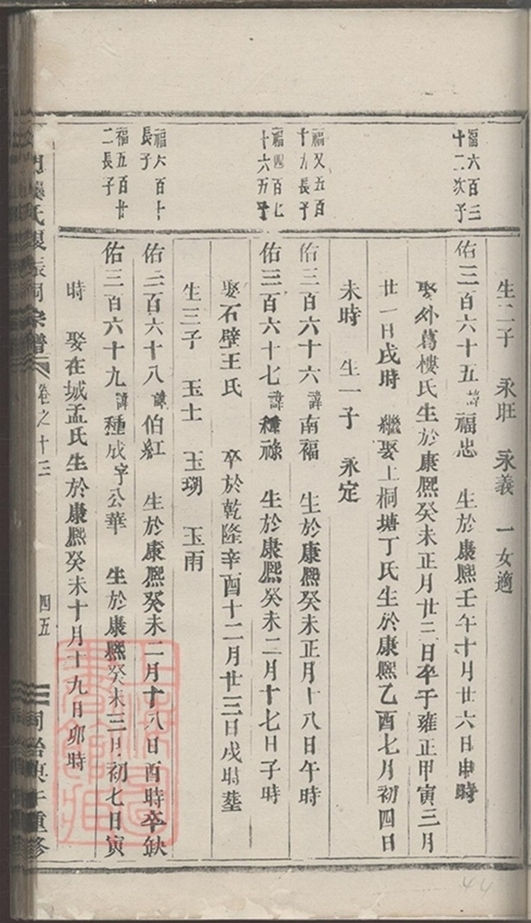 生二子 永旺 永義 一女適
福六百三
十二次子
佑三百六十五 諱福忠 生於康熙壬午十月廿六日申時
娶外葛樓氏生於康熙癸未正月廿三日卒于雍正甲寅三月
廿一日戌時 繼娶上桐塘丁氏生於康熙乙酉七月初四日
未時 生一子 永定
福又五百
十九長子
佑三百六十六 諱南福 生於康熙癸未正月十八日午時
福四百七
十六五子
佑三百六十七 諱種祿 生於康熙癸未二月十七日子時
娶石壁王氏 卒於乾隆辛酉十二月廿三日戌時塟
生三子 玉士 玉瑚 玉雨
福六百十
長子
佑三百六十八 諱伯紅 生於康熙癸未二月十八日酉時卒缺
福五百廿
二長子
佑三百六十九 諱種成字公華 生於康熙癸未三月初七日寅
時 娶在城孟氏生於康熙癸未十月十九日卯時
宗譜 卷之十三 四五 同治庚午重修
44